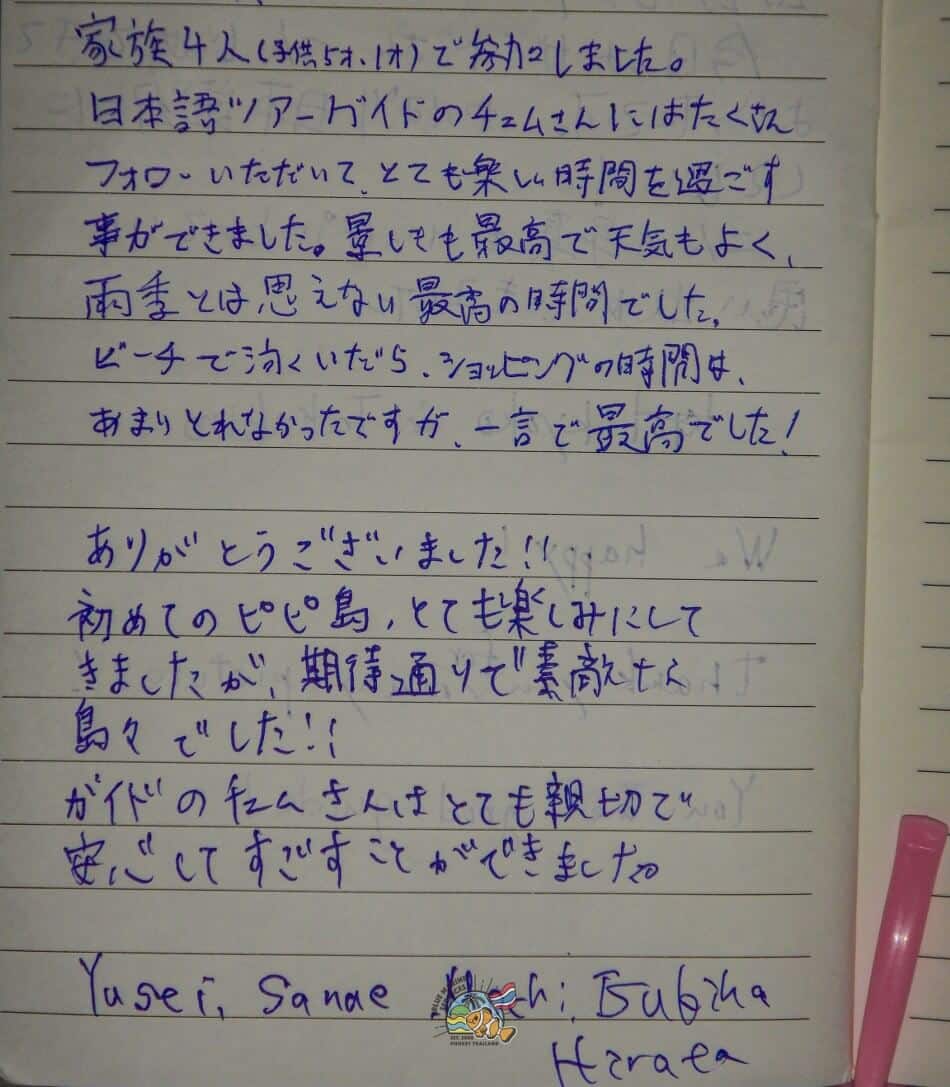 家族4人(子供5才、1才)で参加しました。
日本語ツアーガイドのチェムさんにはたくさん
フォローいただいて、とても楽しい時間を過ごす
事ができました。景しきも最高で天気もよく、
雨季とは思えない最高の時間でした。
ビーチで泳くいだら、ショッピングの時間は、
あまりとれなかったですが、一言で最高でした!
ありがとうございました!!
初めてのピピ島、とても楽しみにして
きましたが、期待通りで素敵な
島々でした!!
ガイドのチェムさんはとても親切で
安心してすごすことができました。
Yusei, Sanae
Hirata